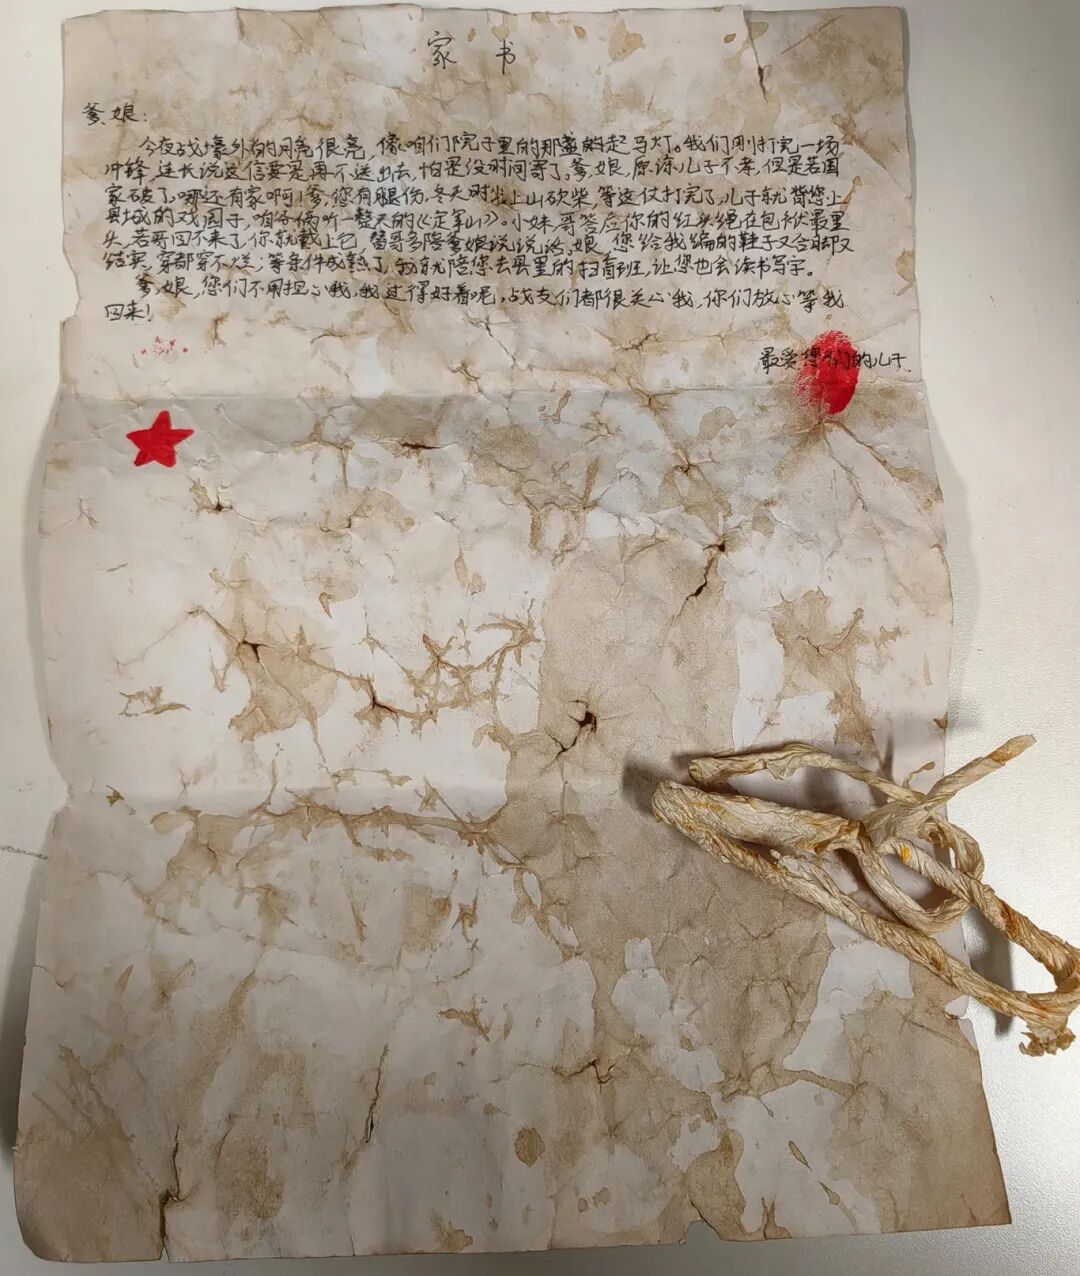 家 书
爹、娘：
今夜战壕外的月亮很亮，像咱们院子里的那盏的起马灯。我们刚打完一场
冲锋，连长说这信要是再不送出去，怕是没时间寄了。爹，娘，原谅儿子不孝，但是若国
家破了，哪还有家啊！爹，您有腿伤，冬天时少上山砍柴，等这仗打完了，儿子就背您上
县城的戏园子，咱爷俩听一整天的《定军山》。小妹，哥答应你的红头绳在包袱最里
头，若哥回不来了，你就戴上它，替哥多陪爹娘说说话。娘，您给我编的鞋子又合脚又
结实，穿都穿不烂；等条件成熟了，我就陪您去县里的扫盲班，让您也会读书写字。
爹，娘，您们不用担心我，我过得好着呢，战友们都很关心我，你们放心等我
回来！
最爱您们的儿子.